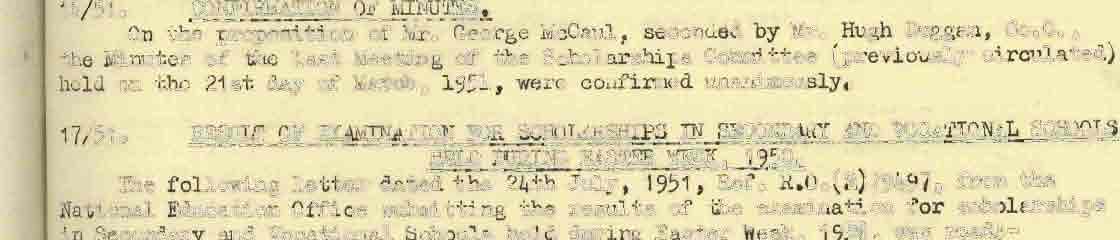 16/51. CONFIRMATION OF MINUTES.
On the proposition of Mr. George McCaul, seconded by Mr. Hugh Duggan, Co.C.,
the Minutes of the Last Meeting of the Scholarships Committee (previously circulated)
held on the 21st day of March, 1951, were confirmed unanimously.
17/51. RESULT OF EXAMINATION FOR SCHOLARSHIPS IN SECONDARY AND VOCATIONAL SCHOOLS
HELD DURING EASTER WEEK, 1950.
The following letter dated the 24th July, 1951, Ref. R.O.(E)79497, from the
National Education Office submitting the results of the examination for scholarships
in Secondary and Vocational Schools held during Easter Week, 1951, was read:-